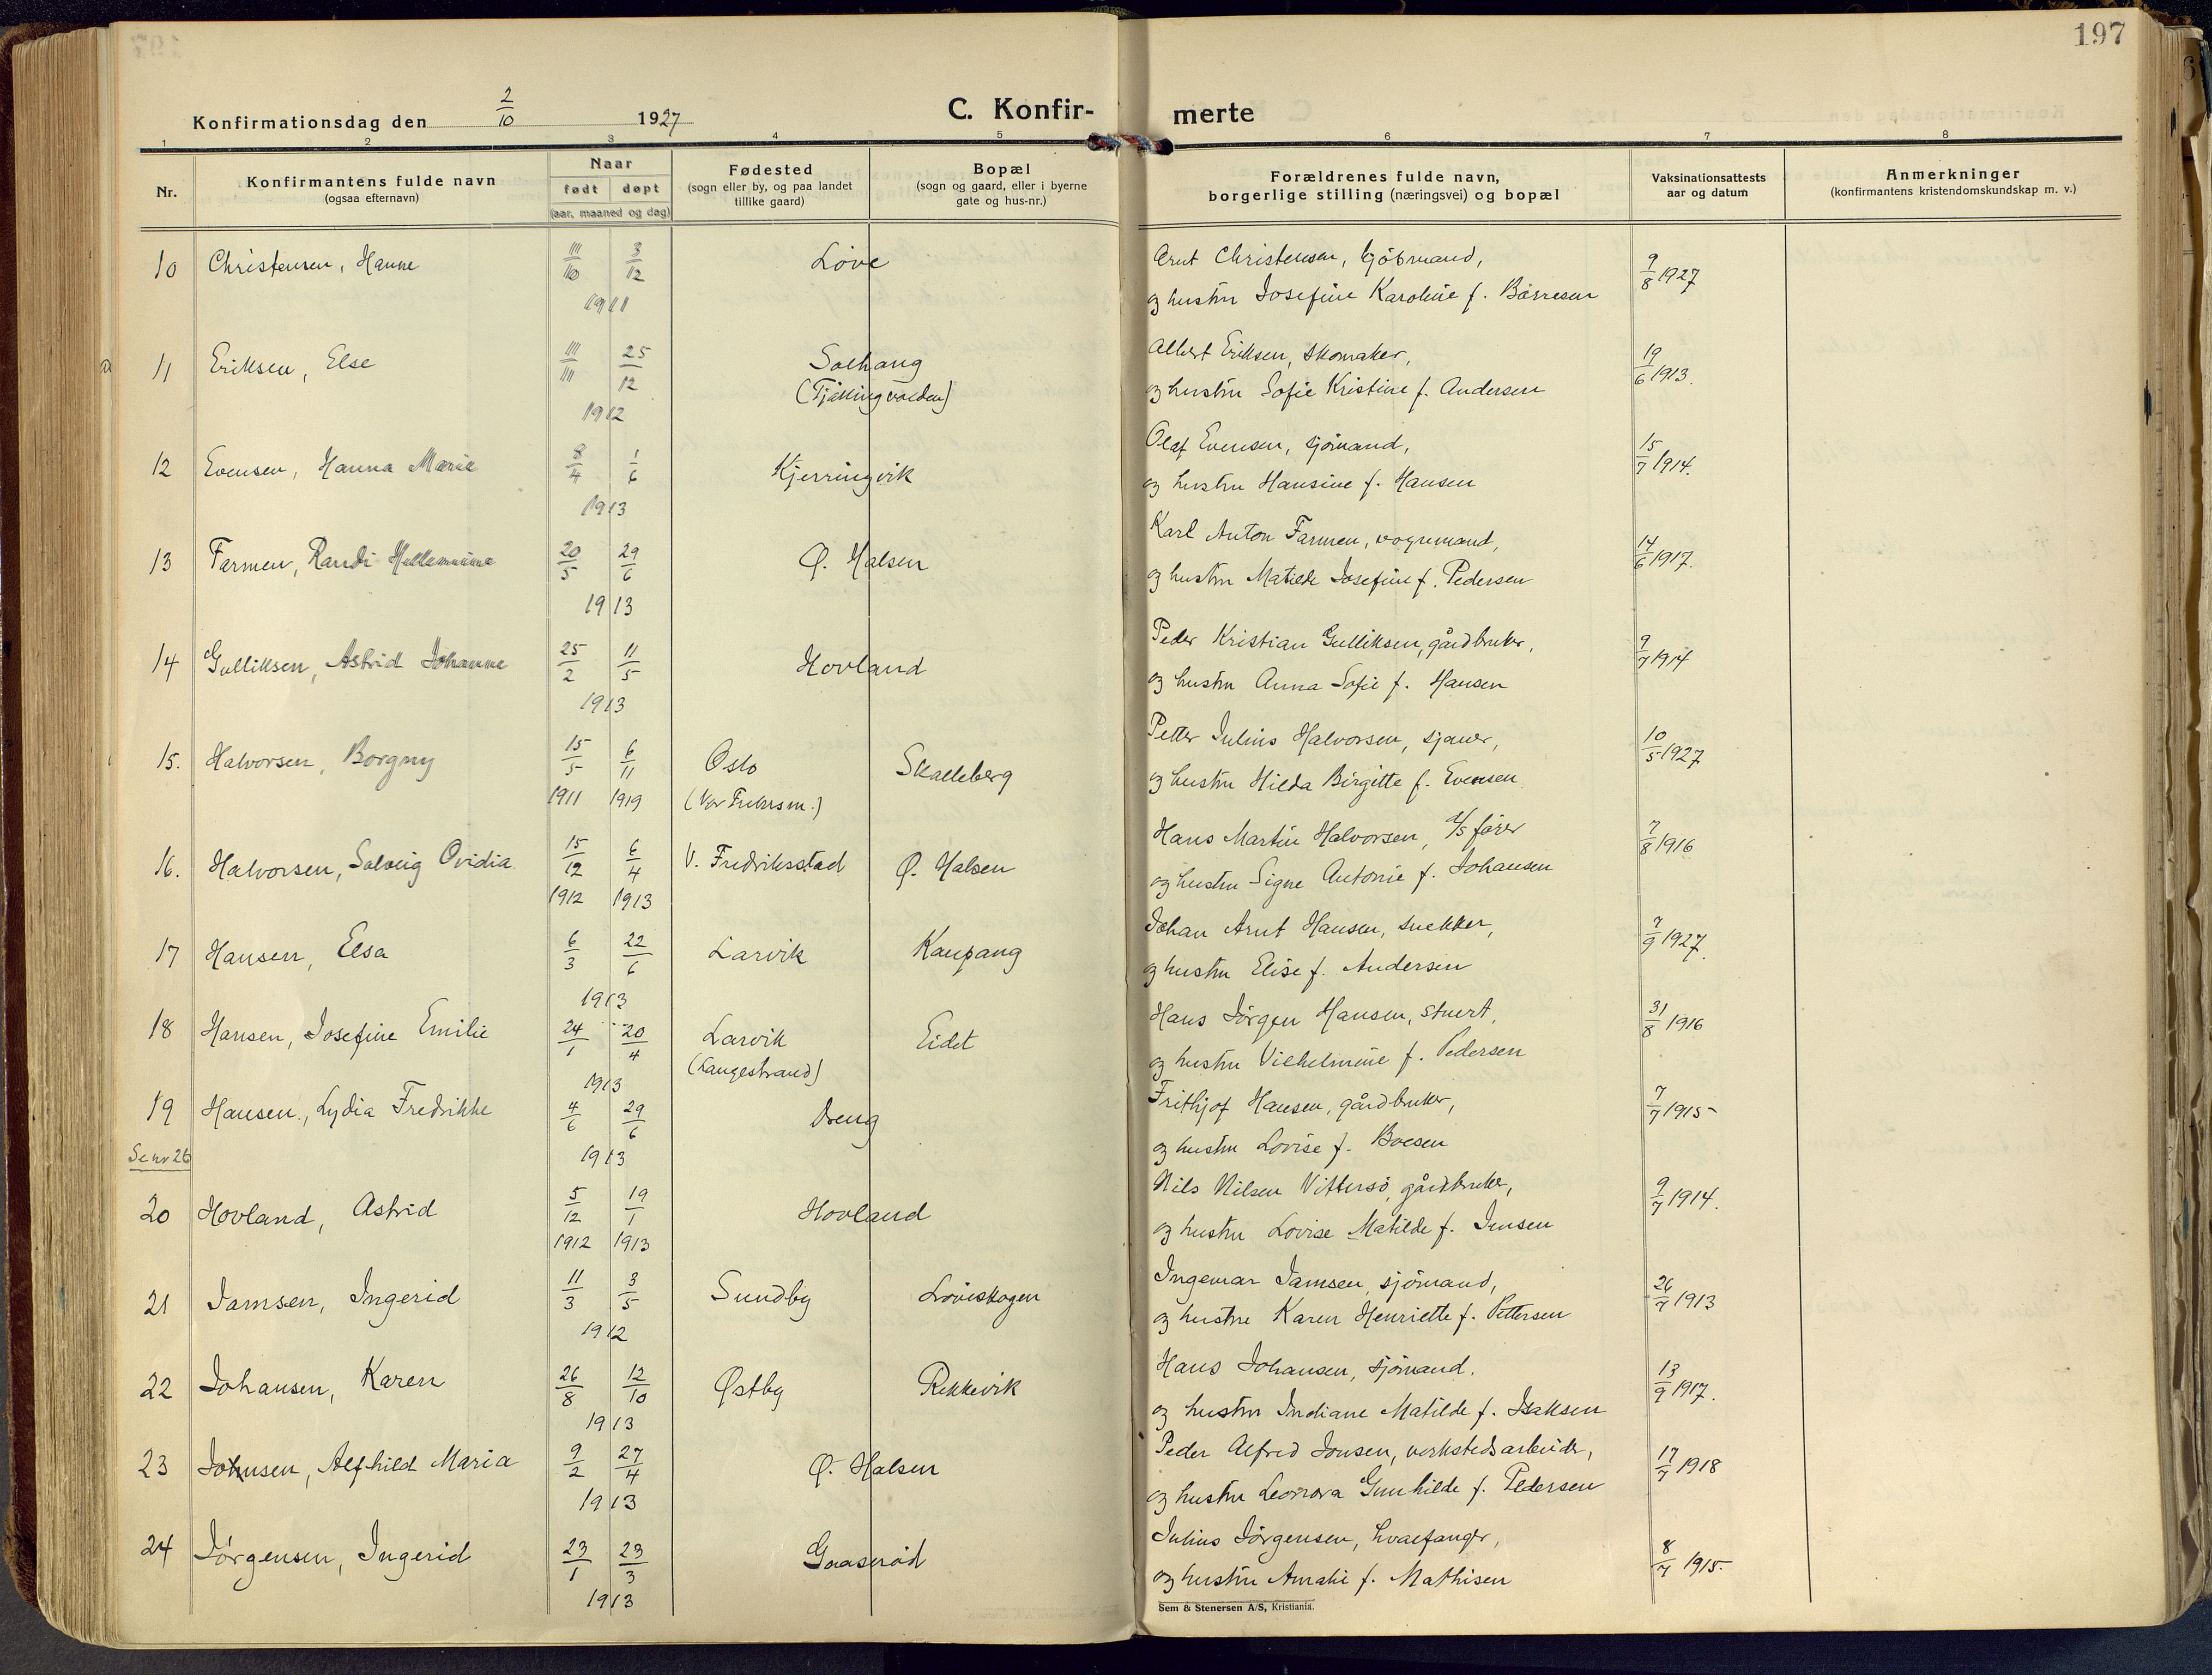 197
Konfirmationsdag den 2/10 1927
C. Konfir-
merte
1 2 3 4 5 6 7 8
Nr.
Konfirmantens fulde navn
(ogsaa efternavn)
Naar
født døpt
(aar, maaned og dag)
Fødested
(sogn eller by, og paa landet
tillike gaard)
Bopæl
(sogn og gaard, eller i byerne
gate og hus-nr.)
Forældrenes fulde navn,
borgerlige stilling (næringsvei) og bopæl
Vaksinationsattests
aar og datum
Anmerkninger
(konfirmantens kristendomskundskap m. v.)
10 Christensen, Hanne 3/12 Løve Arnt Christensen, sjömand, 9/8 1927
1911 og hustru Josefine Karoline f. Børresen
11 Eriksen, Else 25/12 Solhang Albert Eriksen, skomaker, 19/6 1913.
1912 og hustru Sofie Kristine f. Andersen
12 Evensen, Hanna Marie 8/4 1/6 Kjerringvik Olaf Evensen, sjømand, 15/7 1914.
1913 og hustru Hansine f. Hansen
13 Farmen, Randi 20/5 29/6 Ø. Halsen Karl Anton Farmen, vognmand, 14/6 1917.
1913 og hustru Matilde Josefine f. Pedersen
14 Gulliksen, Astrid Johanne 25/2 11/5 Hovland Peder Kristian Gulliksen, gårdbruker, 9/7 1914
1913 og hustru Anna Sofie f. Hansen
15. Halvorsen, Borgny 15/5 6/11 Oslo Skalleberg Petter Julius Halvorsen, sjauer, 10/5 1927
1911 1919 (Vor Frelsers m.) og hustru Hilda Birgitte f. Evensen
16. Halvorsen, Solveig Ovidia 15/12 6/4 V. Fredriksstad Ø. Halsen Hans Martin Halvorsen, fører 7/8 1916
1912 1913 og hustru Signe Antonie f. Johansen
17 Hansen, Elsa 6/3 22/6 Larvik Kaupang Johan Arnt Hansen, snekker, 7/9 1927.
1913 og hustru Elise f. Andersen
18 Hansen, Josefine Emilie 24/1 20/4 Larvik Eidet Hans Jørgen Hansen, stuert, 31/8 1916
1913 (Langestrand) og hustru Vilhelmine f. Pedersen
19 Hansen, Lydia Fredrikke 4/6 29/6 Dreng Frithjof Hansen, gårdbruker, 7/7 1915
Se nr 26 1913 og hustru Lovise f. Boesen
20 Hovland, Astrid 5/12 19/1 Hovland Nils Nilsen Vittersø, gårdbruker, 9/7 1914.
1912 1913 og hustru Lovise Matilde f. Jensen
21 Jamsen, Ingerid 11/3 3/5 Sundby Løveskogen Ingemar Jamsen, sjömand, 26/7 1913
1912 og hustru Karen Henriette f. Pettersen
22 Johansen, Karen 26/8 12/10 Østby Rekkevik Hans Johansen, sjömand. 13/9 1917.
1913 og hustru Indiane Matilde f. Isaksen
23 Jonsen, Alfhild Maria 9/2 27/4 Ø. Halsen Peder Alfred Jonsen, verkstedsarbeider, 17/7 1918
1913 og hustru Leonora Gunhilde f. Pedersen
24 Jørgensen, Ingerid 23/1 23/3 Gaaserød Julius Jørgensen, hvalfanger, 8/7 1915.
1913 og hustru Amalie f. Mathisen
Sem & Stenersen A/S, Kristiania.